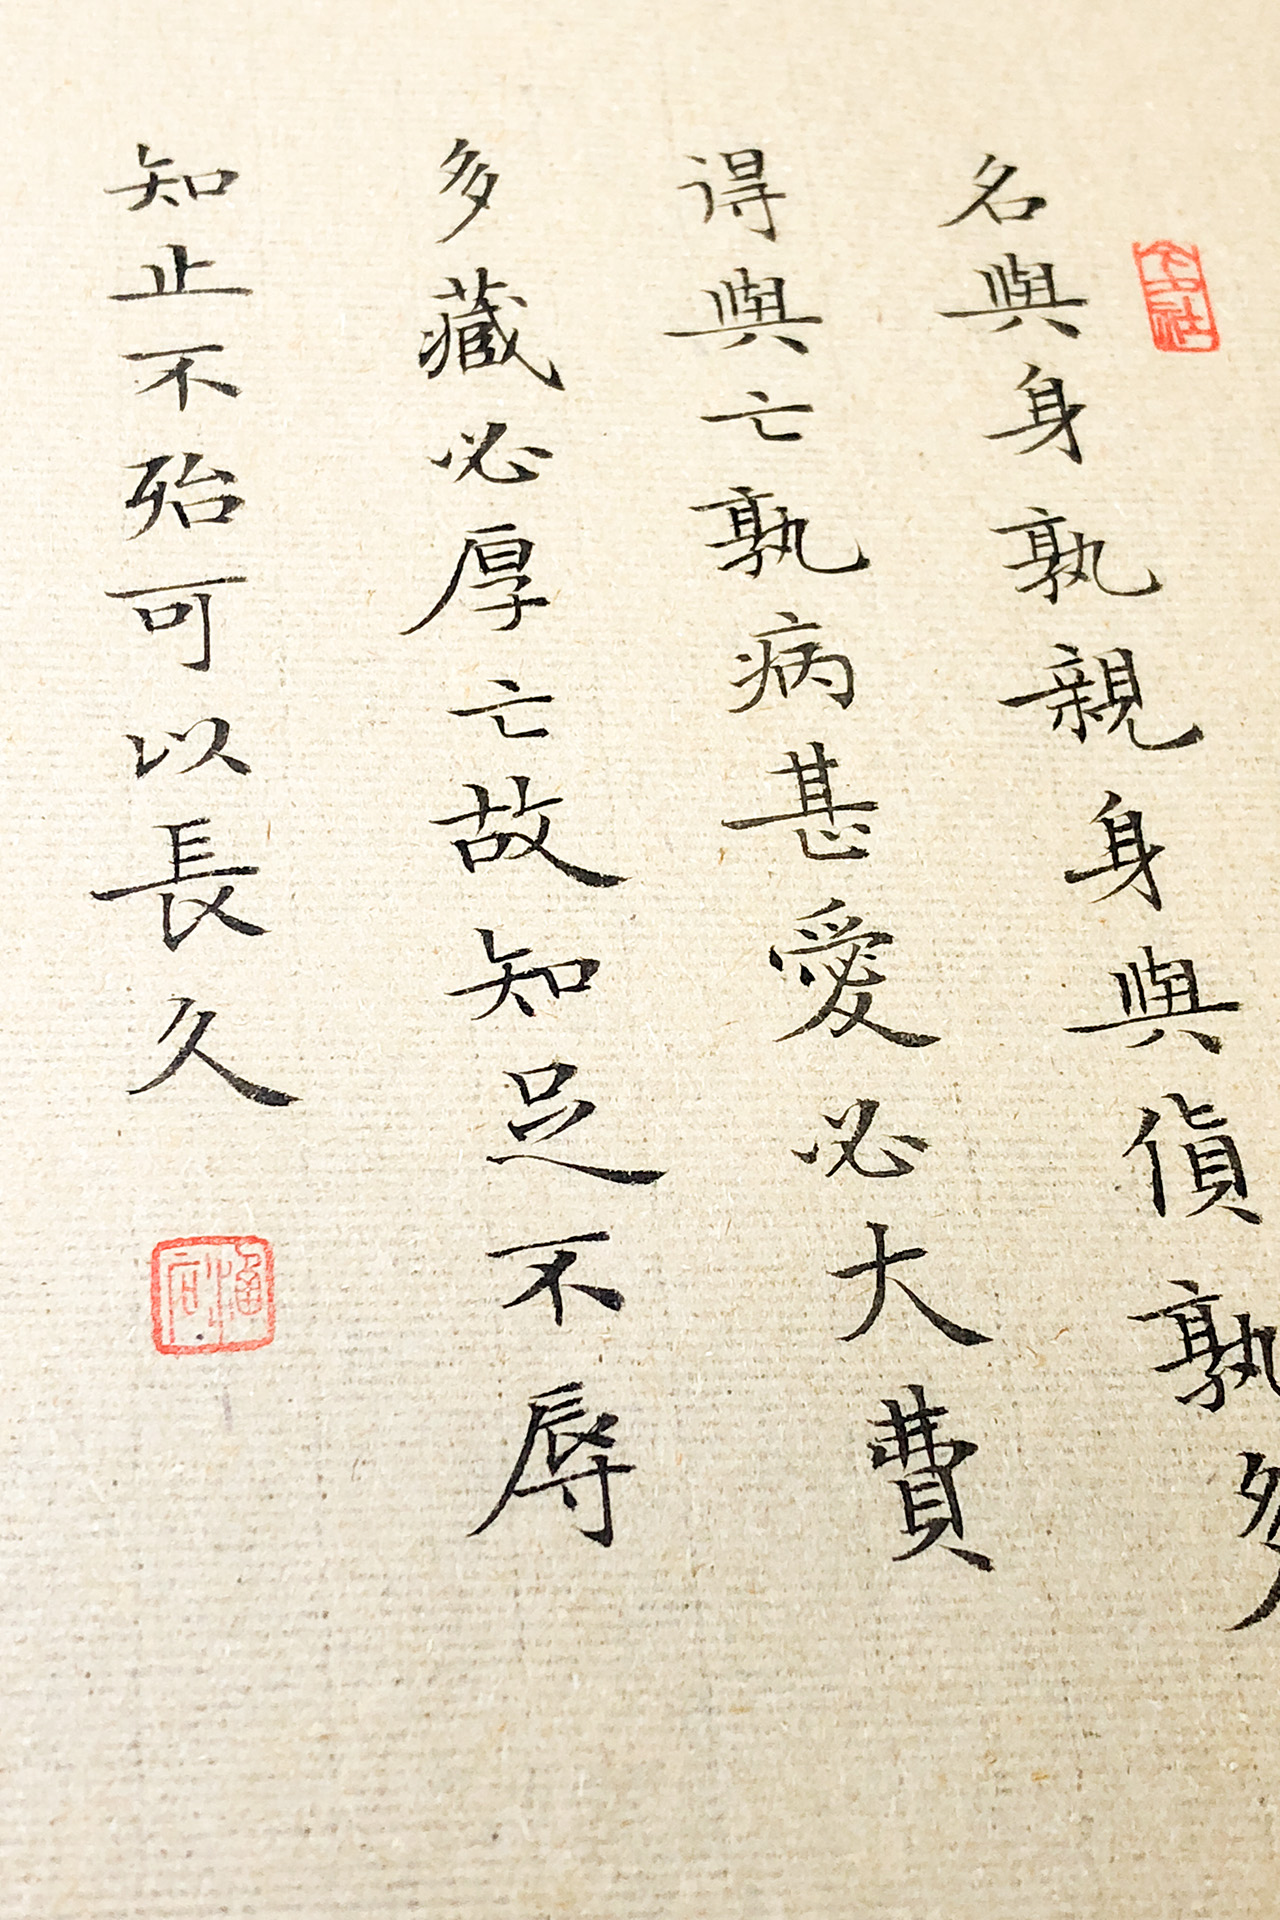 名與身孰親身與貨孰多
得與亡孰病甚愛必大費
多藏必厚亡故知足不辱
知止不殆可以長久